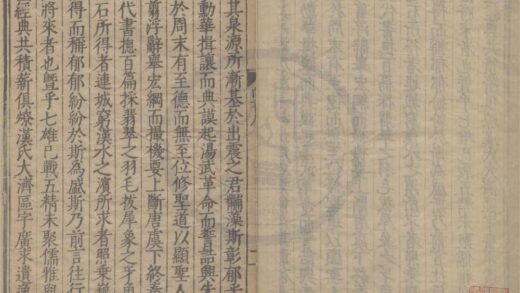 其泉源所漸基於出震之君黼藻斯彰郁乎
勳華揖讓而典謨起湯武革命而誓誥興先
於周末有至德而無至位修聖道以顯聖人
翦浮辭舉宏綱而撮機要上斷唐虞下終秦
代書摠百篇採翡翠之羽毛拔犀象之牙角
石所得者連城窮漢水之濱所求者照乘巍
得而稱郁郁紛紛於斯為盛斯乃前言往行
將來者也暨乎七雄已戰五精未聚儒雅與
經典共積薪俱燎漢氏大濟區宇廣求遺逸